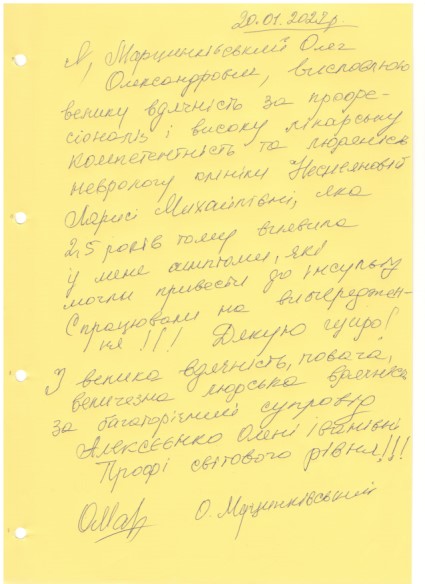 20.01.2022р.
Я, Марцинківський Олег
Олександрович, висловлюю
велику вдячність за профе-
сіоналіз і високу лікарську
компетентність та людяність
неврологу клініки
Ларисі Михайлівні, яка
2,5 років тому виявила
у мене симптоми, які
могли привести до інсульту
Спрацювали на випереджен-
ня!!! Дякую щиро!
І велика вдячність, повага,
величезна людська вдячність
за багаторічний супровід
Алексєєнко Олені Іванівні
Профі світового рівня!!!
О. Марцинківський